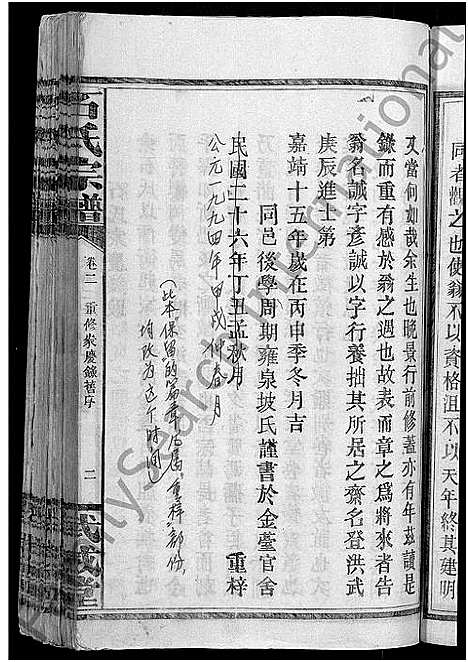 同者觀之也使翁不以資格沮不以天年終其建明
又當何如哉余生也晚景行前修蓋亦有年茲讀是
錄而重有感於翁之過也故表而章之為將來者告
翁名誠字彥誠以字行養拙其所居之齋名登洪武
庚辰進士第
嘉靖十五年歲在丙申季冬月吉
同邑後學周期雍泉坡氏謹書於金臺官舍
民國二十六年丁丑孟秋月 重梓
公元一九九四年甲戌仲春月
(此本保留的篇章凡屬"重梓"部份,
均改为这个时间)
石氏宗譜
卷二 重修衆慶錄舊序 二
武威堂
MySearchInternational